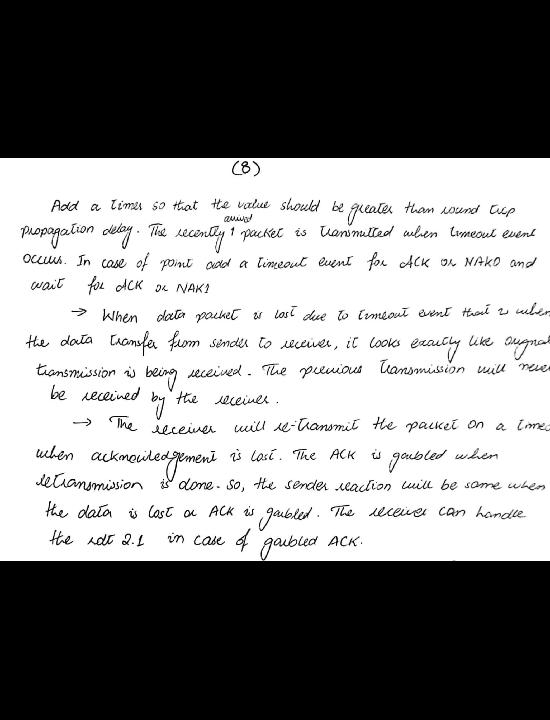 (8)
Add a timer so that the value should be greater than round trip
arrival
propagation delay. The recently 1 packet is transmitted when timeout event
occurs. In case of point add a timeout event for ACK or NAK0 and
wait for ACK or NAK1
→ When data packet is lost due to timeout event that is when
the data transfer from sender to receiver, it looks exactly like orignal
transmission is being received. The previous transmission will never
be received by the receiver.
→ The receiver will re-transmit the packet on a timeo
when acknowledgement is lost. The ACK is garbled when
retransmission is done. So, the sender reaction will be same when
the data is lost or ACK is garbled. The receiver can handle
the rdt 2.1 in case of garbled ACK.